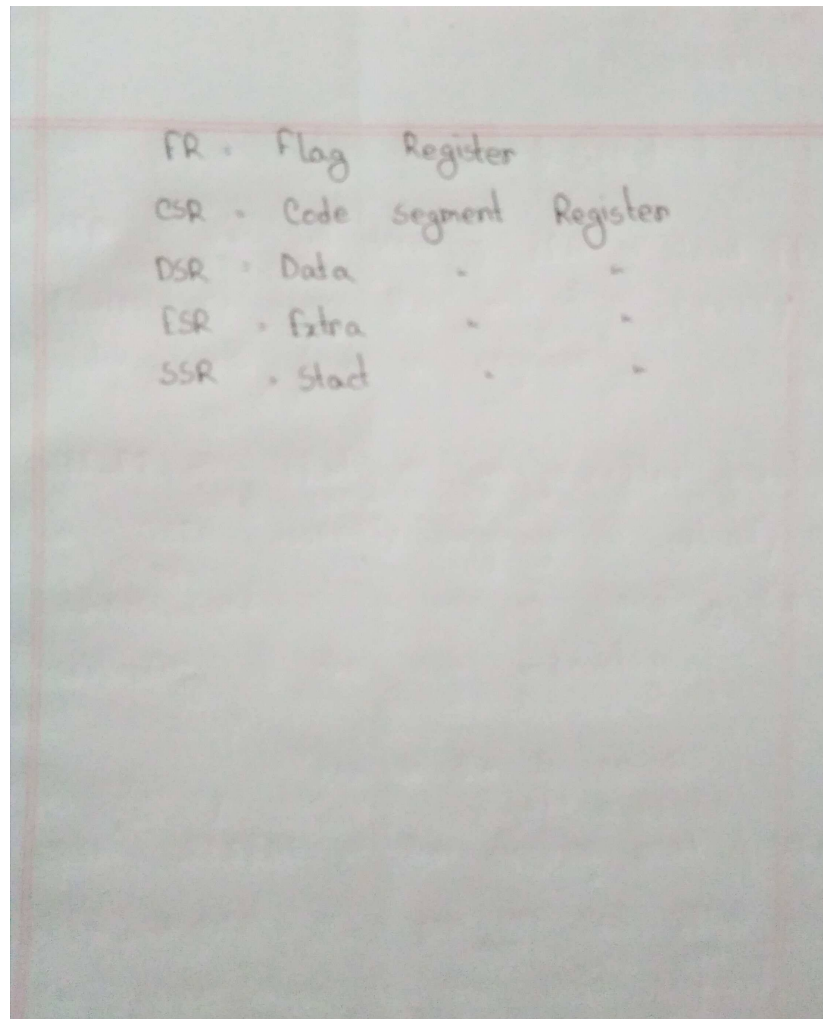 FR = Flag Register
CSR = Code segment Register
DSR = Data " "
ESR = Extra " "
SSR = Stack " "